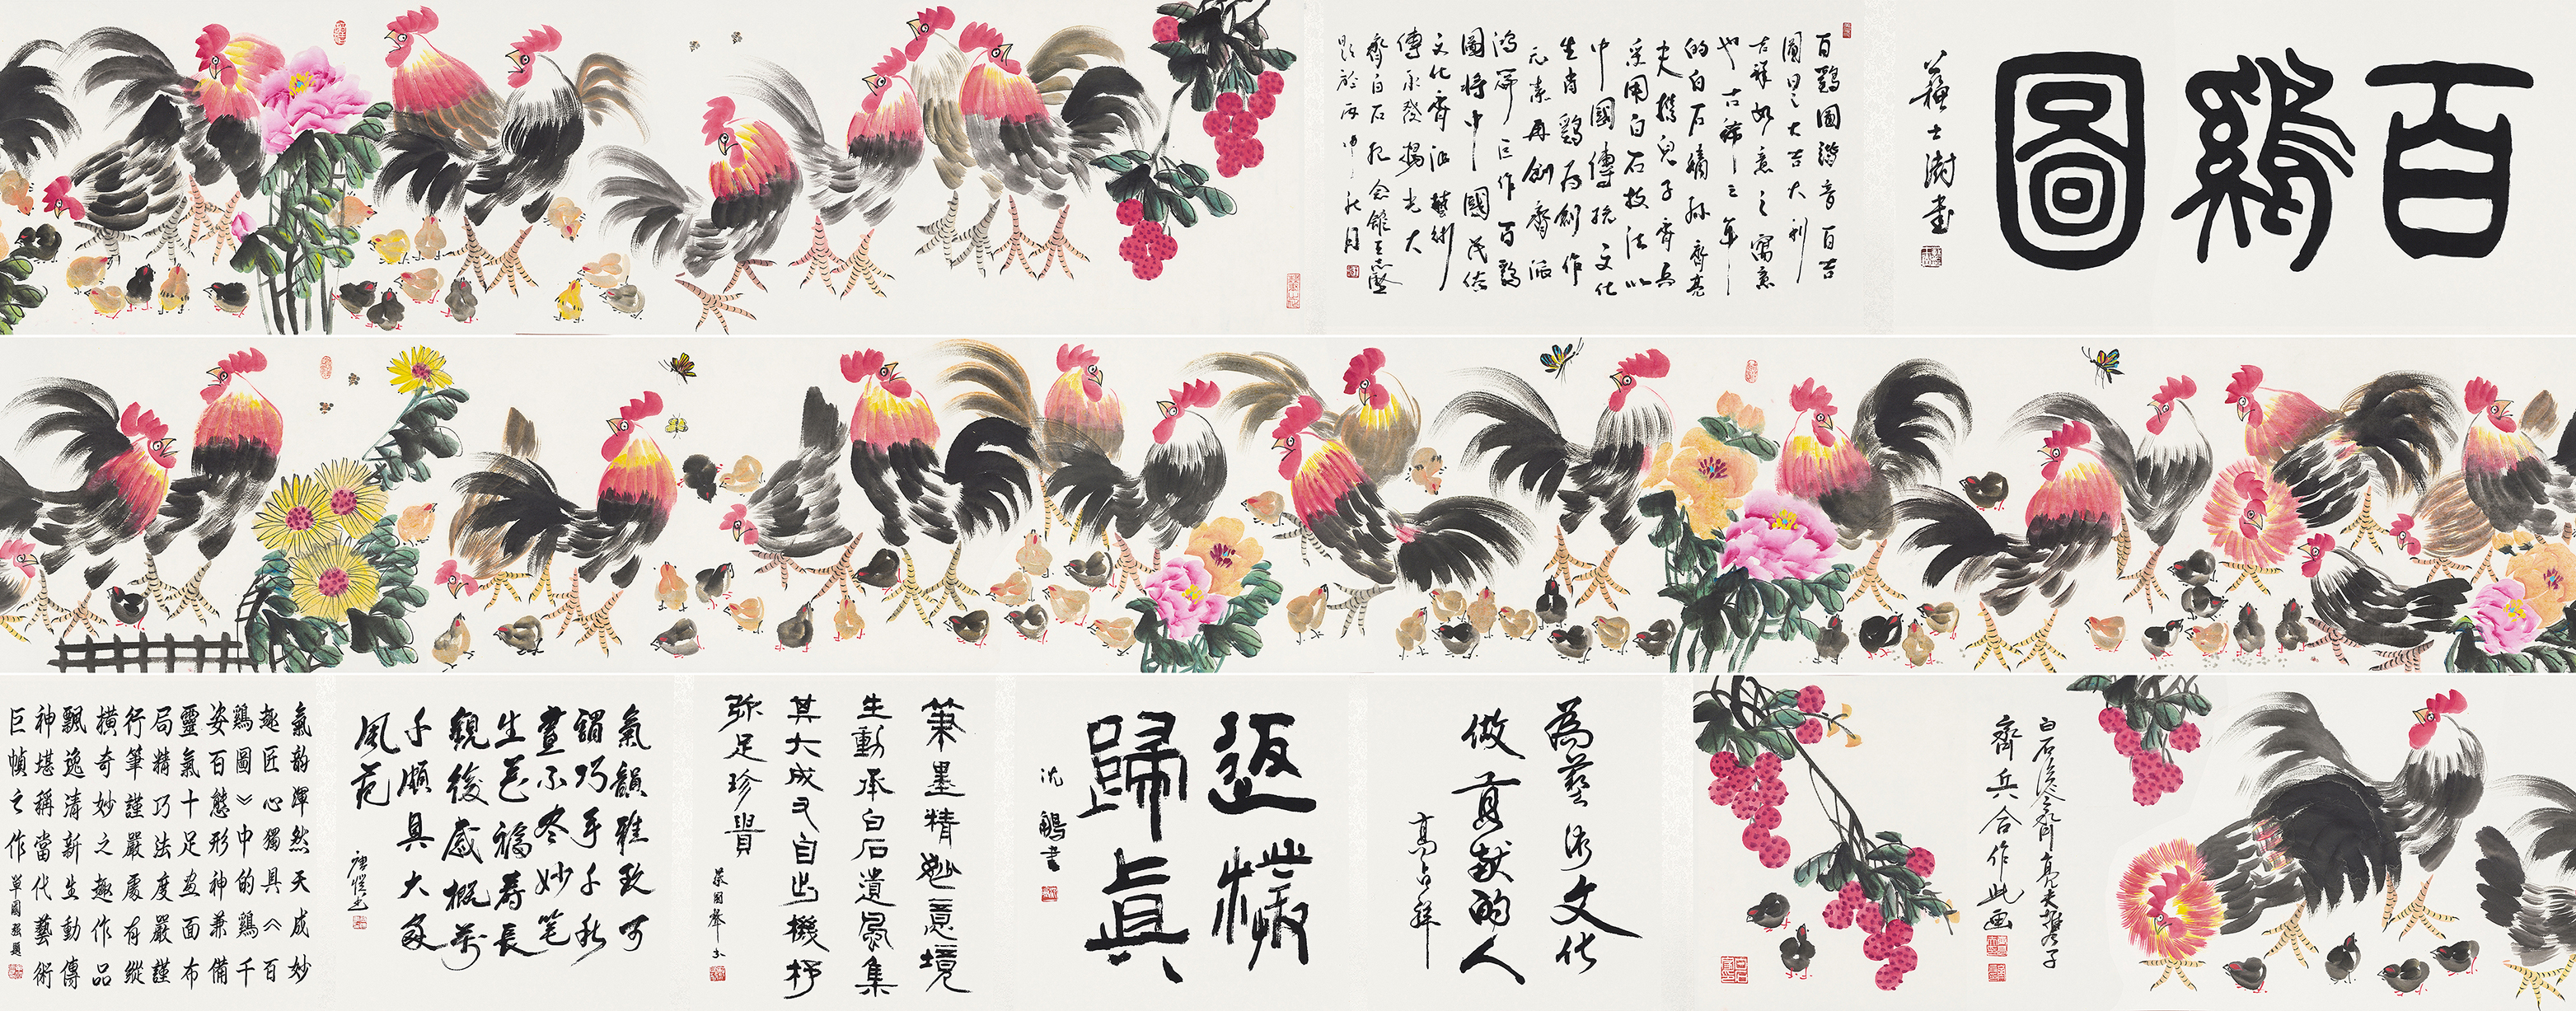 百鷄圖
蘇士澍書
百鷄圖諧音百吉
圖曰之大吉大利
吉祥如意之寓意
也古稀之年
的白石嫡孫齊亮
夫攜兒子齊兵
采用白石技法以
中國傳統文化
生肖鷄爲創作
元素再創齊派
鴻篇巨作百鷄
圖將中國民俗
文化齊派藝術
傳承發揚光大
齊白石紀念館王志堅
題於丙申秋月
白石後人齊亮夫攜子
齊兵合作此画
為藝術文化
做貢献的人
高占祥
返樸
歸眞
沈鵬書
筆墨精妙意境
生動承白石遺風集
其大成又自出機杼
弥足珍貴
氣韻雅致可
謂巧手千秋
畫不盡妙笔
生花福壽長
觀後感概萬
千頗具大家
風范
氣韵渾然天成妙
趣匠心獨具《百
鷄圖》中的鷄千
姿百態形神兼備
靈氣十足画面布
局精巧法度嚴謹
行筆謹嚴處有縱
橫奇妙之趣作品
飄逸清新生動傳
神堪稱當代藝術
巨幀之作 單國强題